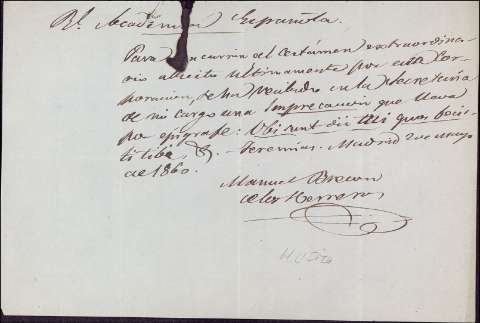 Rl. Academia Española.
Para concurrir al certámen extraordina-
rio abierto ultimamente por esta Cor-
poracion, se ha recibido en la Secretaría
de mi cargo una Imprecacion que lleva
por epígrafe: Ubi sunt dii tui quos fecis-
ti tibi, &. Jeremias. Madrid 2 de mayo
de 1860.
Manuel Breton
de los Herreros